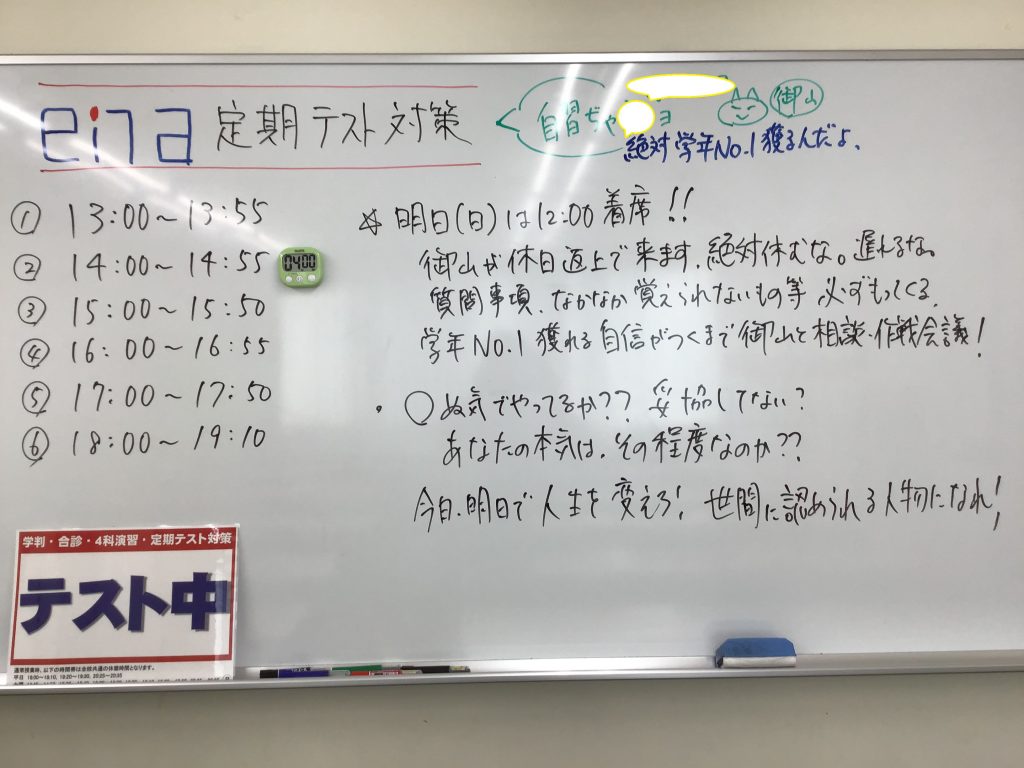 eina 定期テスト対策
自習ちゃ ョ
御山
絶対学年No.1獲るんだよ、
① 13:00～13:55
② 14:00～14:55
③ 15:00～15:50
④ 16:00～16:55
⑤ 17:00～17:50
⑥ 18:00～19:10
0400
☆ 明日(日)は12:00着席!!
御山が休日返上で来ます、絶対休むな。遅れるな。
質問事項、なかなか覚えられないもの等 必ずもってくる。
学年No.1獲れる自信がつくまで御山と相談・作戦会議!
・〇ぬ気でやってるか?? 妥協してない?
あなたの本気は、その程度なのか??
今日、明日で人生を変えろ! 世間に認められる人物になれ!
学判・合診・4科演習・定期テスト対策
テスト中
通常授業時、以下の時間帯は全館共通の休憩時間となります。
平日 18:00～18:10, 19:20～19:30, 20:25～20:35